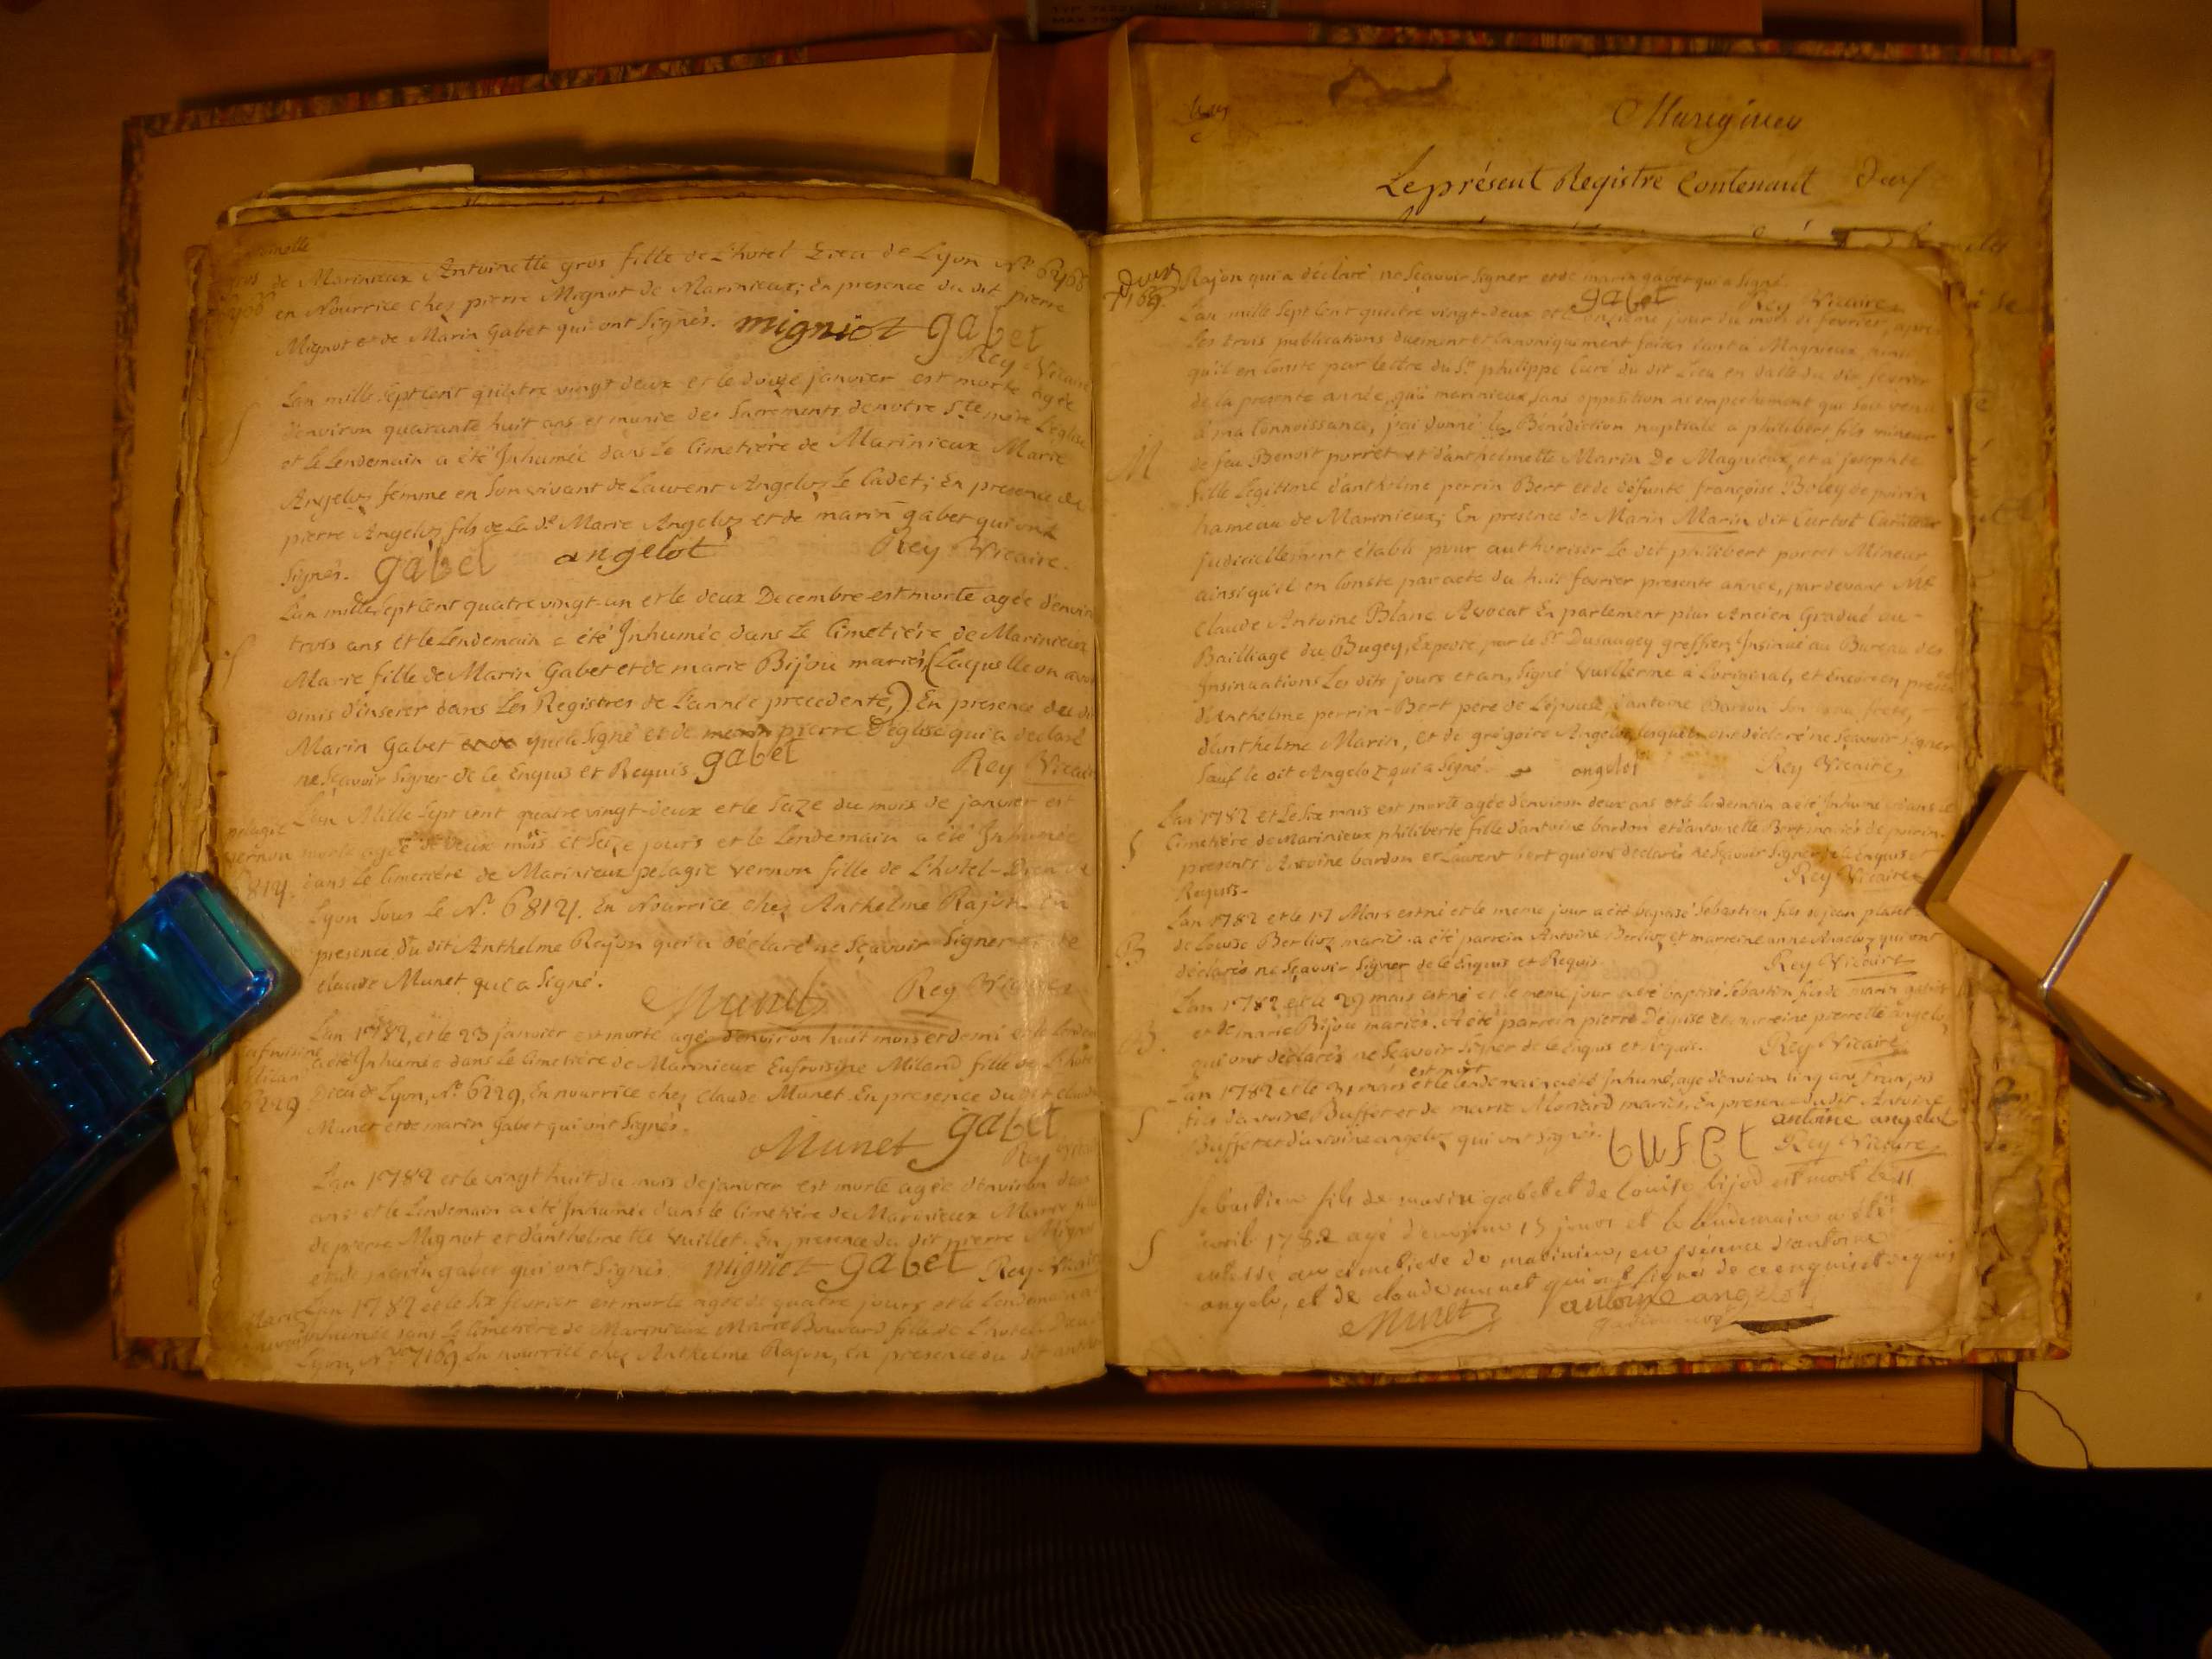 de Marinieux Antoinette gros fille de L'hotel Dieu de Lyon N°
en Nourrice chez pierre Mignot de Marinieux; En presence du dit pierre
Mignot et de Marin Gabet qui ont Signés. migniot gabet
Rey Vicaire
L'an mille Sept Cent quatre vingt deux et le douze janvier est morte agée
d'environ quarante huit ans et munie des Sacrements de notre Ste mere L'eglise
et Le Lendemain a été Inhumée dans Le Cimetiére de Marinieux Marie
Angeloz femme en Son vivant de Laurent Angeloz Le Cadet; En presence de
pierre Angeloz fils de La de Marie Angeloz et de marin gabet qui ont
Signés. gabet angelot Rey Vicaire.
L'an mille Sept Cent quatre vingt-un et le deux Decembre est morte agée d'environ
trois ans et le Lendemain a été Inhumée dans Le Cimetiére de Marinieux
Marie fille de Marin Gabet et de marie Bijou mariés, (Laquelle on avoit
omis d'inserer dans Les Registres de L'année precedente,) En presence du dit
Marin Gabet qui a Signé et de pierre D'eglise qui a declaré
ne Sçavoir Signer de ce Enquis et Requis. gabet Rey Vicaire
L'an Mille Sept cent quatre vingt-deux et le Seize du mois de janvier est
pelagie
vernon morte agée de deux mois et Seize jours et le Lendemain a été Inhumée
6812 dans Le Cimetiére de Marinieux pelagie vernon fille de L'hotel-Dieu de
Lyon Sous Le N° 6812. En Nourrice chez Anthelme Rajon. En
presence du dit Anthelme Rajon qui a déclaré ne Sçavoir Signer et de
claude Munet qui a Signé.
Munet Rey Vicaire
L'an 1782, et le 23 janvier est morte agée d'environ huit mois et demi et le Lendemain
a été Inhumée dans Le Cimetiére de Marinieux Eufroisine Miland fille de L'hotel
6229 Dieu de Lyon, N° 6229, En nourrice chez Claude Munet En presence du dit claude
Munet et de marin Gabet qui ont Signés.
Munet gabet
Rey Vicaire
L'an 1782 et le vingt huit du mois de janvier est morte agée d'environ deux
ans et le Lendemain a été Inhumée dans le Cimetiére de Marinieux Marie fille
de pierre Mignot et d'anthelmette Vuillet. En presence du dit pierre Mignot
et de marin gabet qui ont Signés. migniot gabet Rey Vicaire
Marie L'an 1782 et le Six fevrier est morte agée de quatre jours et le Lendemain a
Inhumée dans Le Cimetiére de Marinieux Marie Bouvard fille de L'hotel Dieu
Lyon, N° 7169 En nourrice chez Anthelme Rajon, En presence du dit
Marignieu
Le présent Registre Contenant
7169. Rajon qui a déclaré ne Sçavoir Signer et de marin gabet qui a Signé.
gabet Rey Vicaire
L'an mille Sept Cent quatre vingt-deux et le onzieme jour du mois de fevrier, après
Les trois publications duement et Canoniquement faites tant à Magnieux, ainsi
qu'il en Conste par lettre du Sr philippe Curé du dit Lieu en datte du dix fevrier
de la presente année, qu'à marinieux, sans opposition ni empechement qui Soit venu
à ma Connoissance, j'ai donné la Bénédiction nuptiale a philibert fils mineur
M de feu Benoit porret et d'anthelmette Marin De Magnieux, et a josephte
fille Légitime d'anthelme perrin Bert et de défunte françoise Boley de poirin
hameau de Marinieux; En presence de Marin Marin dit Curtet Curateur
judiciellement établi pour authoriser Le dit philibert porret Mineur
ainsi qu'il en Conste par acte du huit fevrier presente année, par devant Me
Claude Antoine Blanc Avocat En parlement plus Ancien Gradué au
Bailliage du Bugey, Expedié par le Sr Dusaugey greffier, Insinué au Bureau des
Insinuations Les dits jours et an, Signé Vuillerme a L'original, et Encore en presence
d'Anthelme perrin-Bert pere de L'épouse, d'antoine Bardon Son beau frere,
d'anthelme Marin, et de grégoire Angeloz, Lesquels ont déclaré ne Sçavoir Signer
Sauf le dit Angeloz qui a Signé. angelot Rey Vicaire,
L'an 1782 et Le Six mars est morte agée d'environ deux ans et le Lendemain a été Inhumée dans le
S Cimetiére de Marinieux philiberte fille d'antoine bardon et d'antoinette Bert mariés de poirin.
presents Antoine bardon et Laurent bert qui ont declarés ne Sçavoir Signer de ce Enquis et
Requis. Rey Vicaire
L'an 1782 et le 17 Mars est né et le meme jour a été baptisé Sebastien fils de jean platet
B de Louise Berlioz mariés. a été parrein Antoine Berlioz et marreine anne Angeloz qui ont
déclarés ne Sçavoir Signer de ce Enquis et Requis. Rey Vicaire
L'an 1782 et le 29 mars est né et le meme jour a été baptisé Sebastien fils de marin gabet
B. et de marie Bijou mariés. A été parrein pierre D'eguise et marreine pierrette angeloz
qui ont déclarés ne Sçavoir Signer de ce Enquis et Requis. Rey Vicaire
L'an 1782 et le 31 mars est mort et le Lendemain a été Inhumé, agé d'environ Cinq ans, françois
S fils d'antoine Buffet et de marie Morrard mariés, En presence du dit Antoine
Buffet et d'antoine angeloz qui ont Signés. bufet antoine angelot
Rey Vicaire
Sebastien fils de marin gabet et de Louise bijod est mort le 11
S avril 1782 agé d'environ 15 jours et le lendemain a été
enterré au cimetiere de marinieu, en présence d'antoine
angelo, et de claude munet qui ont signés de ce enquis et requis
Munet antoine angelot